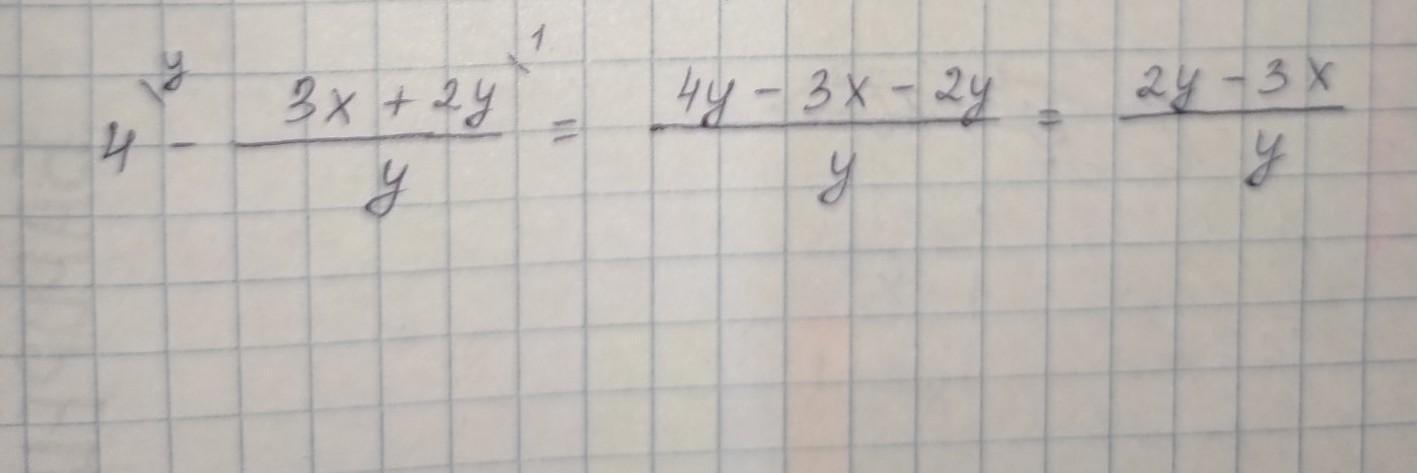 4\y - (3x + 2y)\1 / y = (4y - 3x - 2y) / y = (2y - 3x) / y